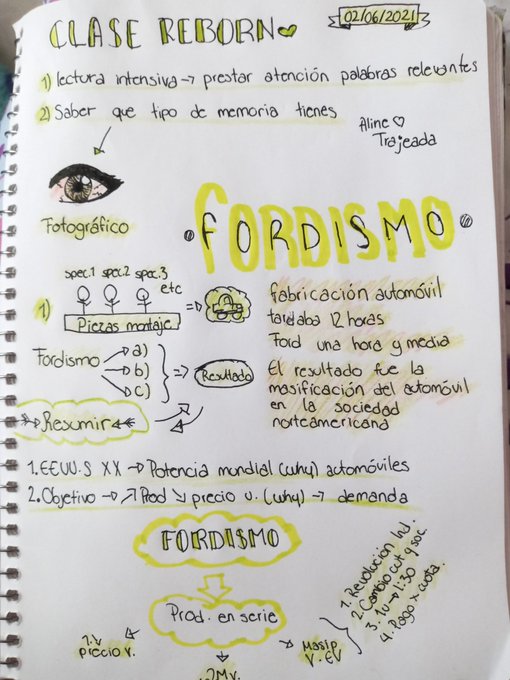 CLASE REBORN
02/06/2021
1) lectura intensiva → prestar atención palabras relevantes
2) Saber que tipo de memoria tienes
Aline ♡
Trajeada
Fotográfico
FORDISMO
spec.1 spec.2 spec.3
etc
1)
Piezas montaje
fabricación automóvil
tardaba 12 horas
Ford una hora y media
Fordismo → a)
→ b)
→ c)
Resultado
El resultado fue la
masificación del automóvil
en la sociedad
norteamericana
Resumir
1. EEUU.S XX → Potencia mundial (why) automóviles
2. Objetivo → ↗ Prod ↘ precio u. (why) → demanda
FORDISMO
Prod. en serie
precio v.
1. Revolución Ind.
2. Cambio cult y soc.
3. 1v → 1:30
4. Pago x cuota.